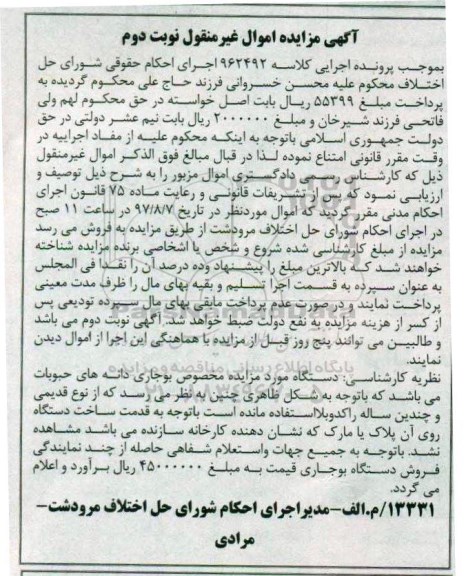 آگهی مزایده اموال غیرمنقول نوبت دوم
بموجب پرونده اجرایی کلاسه ۹۶۲۴۹۲ اجرای احکام حقوقی شورای حل
اختلاف محکوم علیه محسن خسروانی فرزند حاج علی محکوم گردیده به
پرداخت مبلغ ۵۵۳۹۹ ریال بابت اصل خواسته در حق محکوم لهم ولی
فاتحی فرزند شیرخان و مبلغ ۲۰۰۰۰۰۰ ریال بابت نیم عشر دولتی در حق
دولت جمهوری اسلامی باتوجه به اینکه محکوم علیه از مفاد اجراییه در
وقت مقرر قانونی امتناع نموده لذا در قبال مبالغ فوق الذکر اموال غیرمنقول
ذیل که کارشناس رسمی دادگستری اموال مزبور را به شرح ذیل توصیف و
ارزیابی نمود که پس از تشریفات قانونی و رعایت ماده ۷۵ قانون اجرای
احکام مدنی مقرر گردید که اموال موردنظر در تاریخ ۹۷/۸/۷ در ساعت ۱۱ صبح
در اجرای احکام شورای حل اختلاف مرودشت از طریق مزایده به فروش می رسد
مزایده از مبلغ کارشناسی شده شروع و شخص یا اشخاصی برنده مزایده شناخته
خواهند شد که بالاترین مبلغ را پیشنهاد وده درصد آن را نقدا فی المجلس
به عنوان سپرده به قسمت اجرا تسلیم و بقیه بهای مال را ظرف مدت معینی
پرداخت نمایند و درصورت عدم پرداخت مابقی بهای مال سپرده تودیعی پس
از کسر از هزینه مزایده به نفع دولت ضبط خواهد شد. آگهی نوبت دوم می باشد
و طالبین می توانند پنج روز قبل از مزایده با هماهنگی این اجرا از اموال دیدن
نمایند.
نظریه کارشناسی: دستگاه مورد مزایده مخصوص بوجاری دانه های حبوبات
می باشد که باتوجه به شکل ظاهری چنین به نظر می رسد که از نوع قدیمی
و چندین ساله راکدوبلااستفاده مانده است باتوجه به قدمت ساخت دستگاه
روی آن پلاک یا مارک که نشان دهنده کارخانه سازنده می باشد مشاهده
نشد. باتوجه به جمیع جهات واستعلام شفاهی حاصله از چند نمایندگی
فروش دستگاه بوجاری قیمت به مبلغ ۴۵۰۰۰۰۰۰ ریال برآورد و اعلام
می گردد.
۱۳۳۳۱/م.الف-مدیراجرای احکام شورای حل اختلاف مرودشت-
مرادی